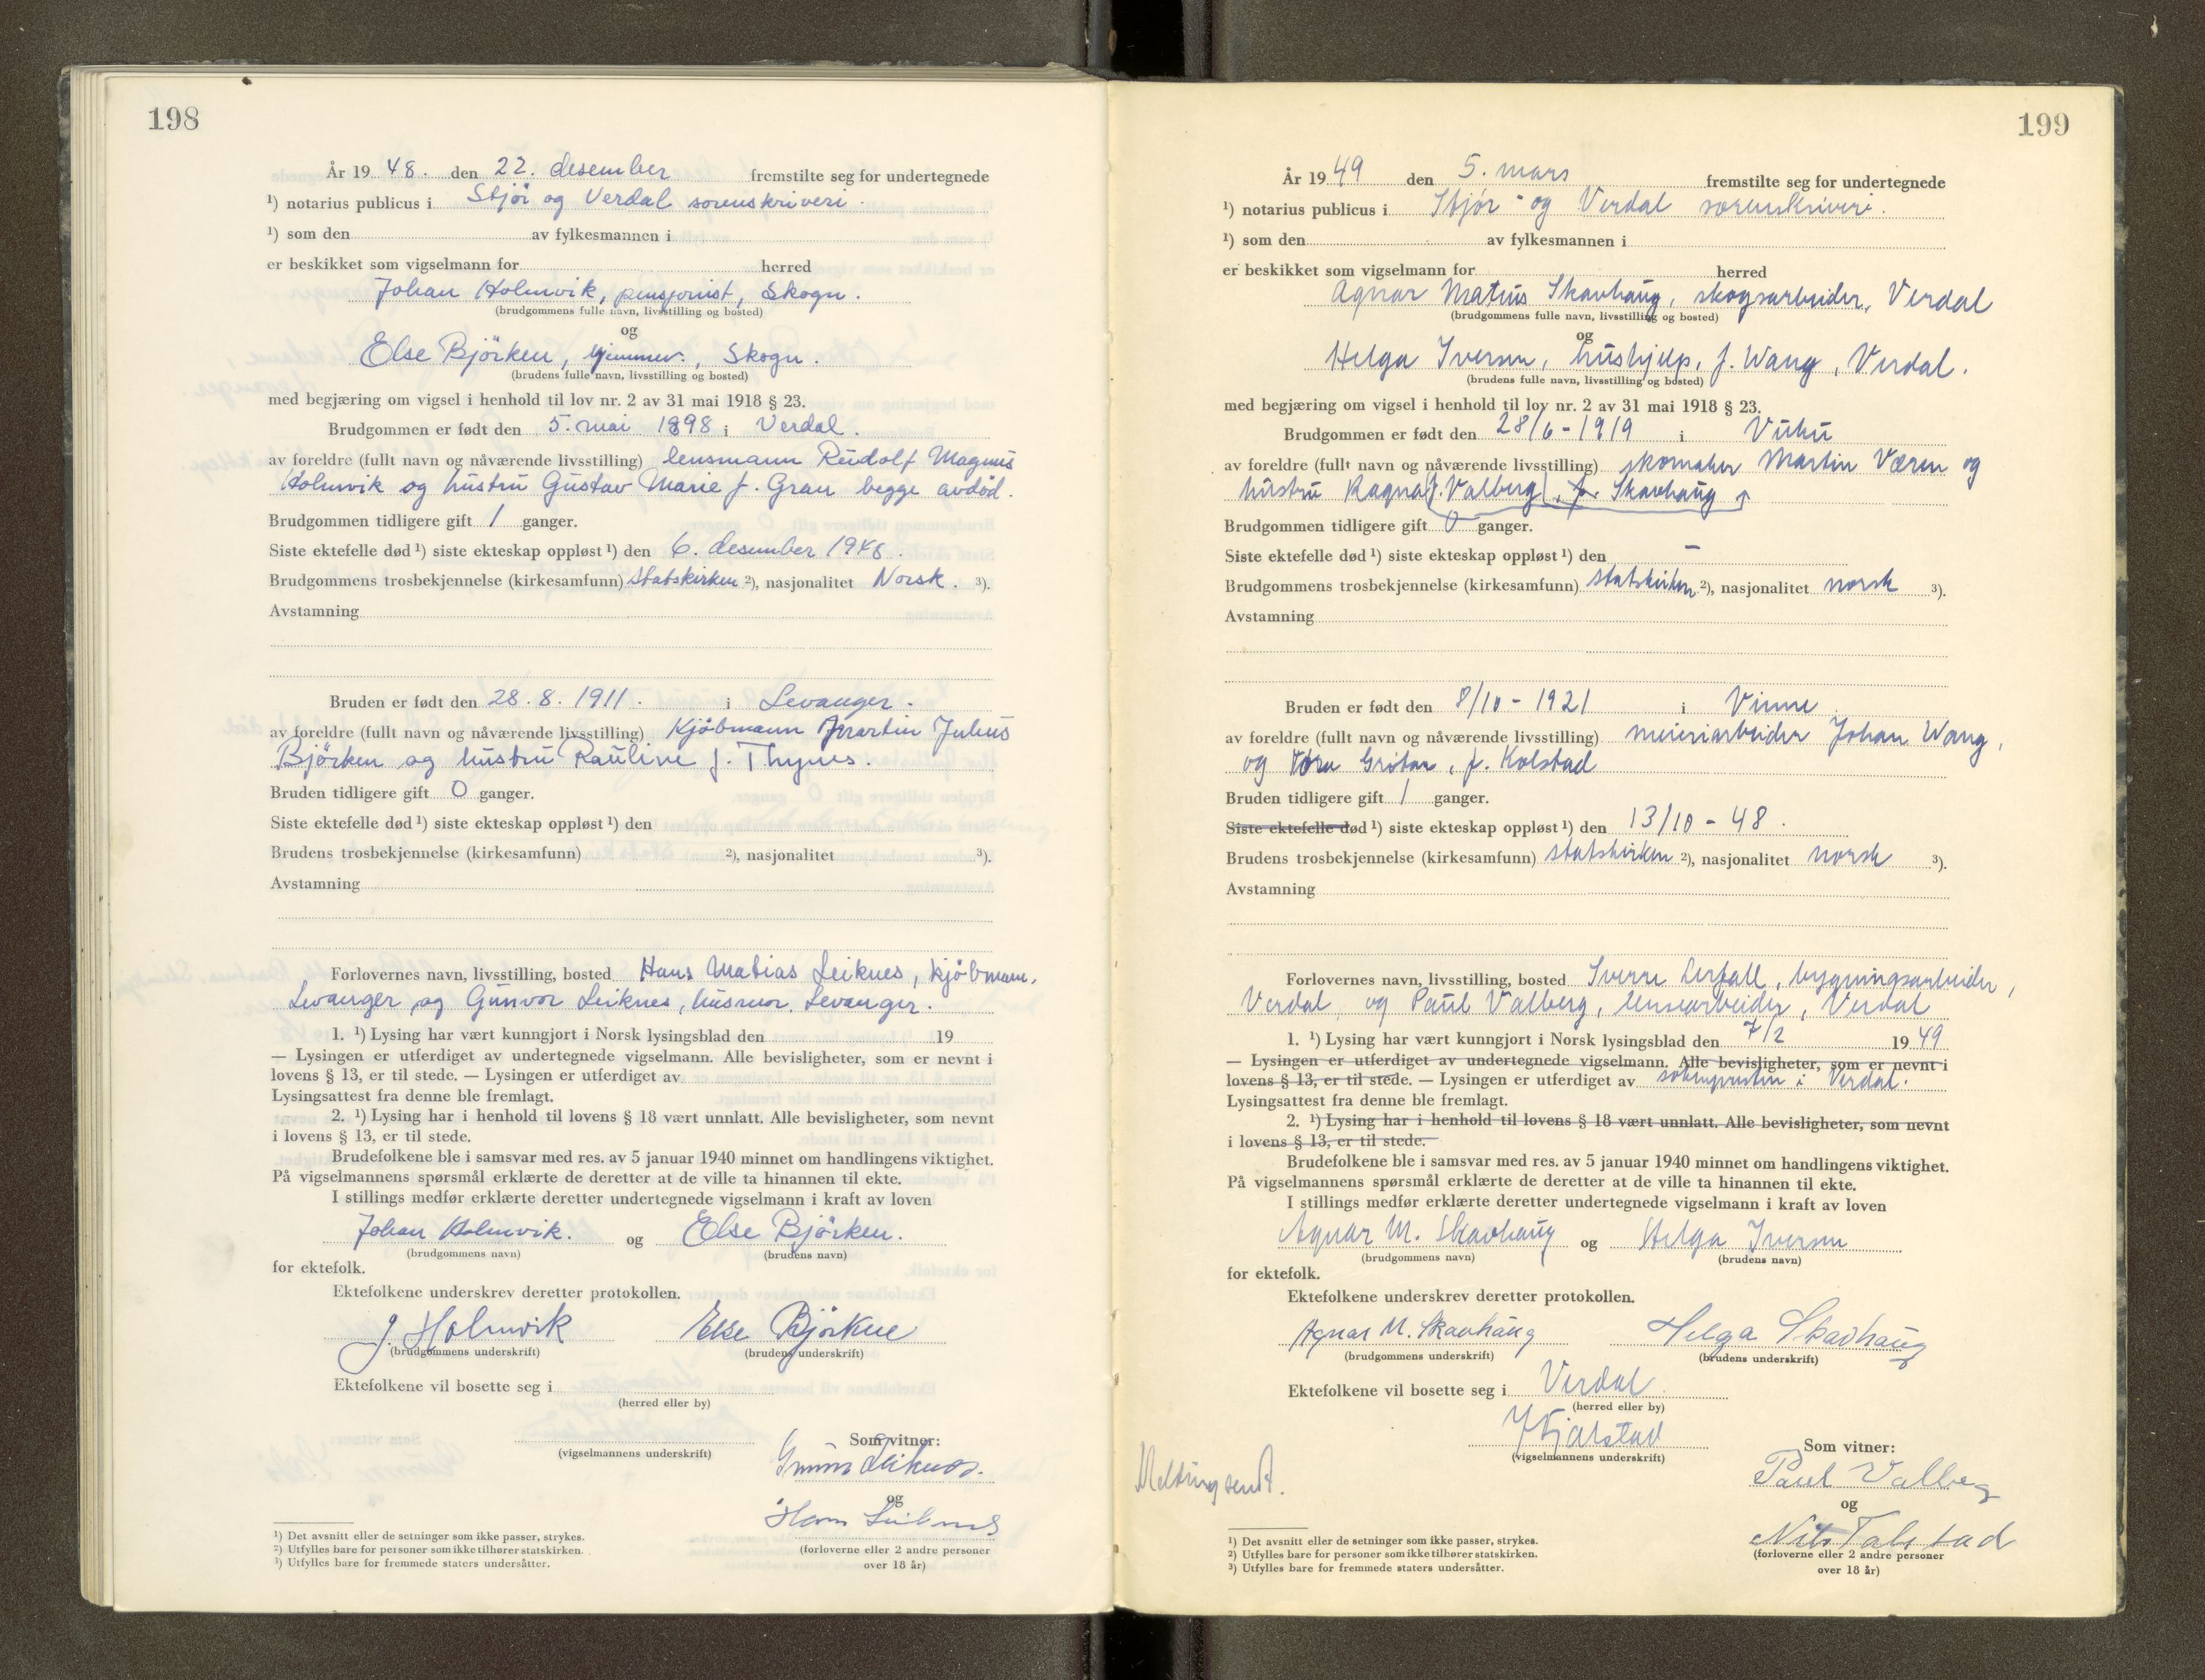 198
År 19 48. den 22. desember fremstilte seg for undertegnede
¹) notarius publicus i Stjør og Verdal sorenskriveri.
¹) som den av fylkesmannen i
er beskikket som vigselmann for herred
Johan Holmvik, pensjonist, Skogn.
(brudgommens fulle navn, livsstilling og bosted)
og
Else Björken, hjemmev., Skogn.
(brudens fulle navn, livsstilling og bosted)
med begjæring om vigsel i henhold til lov nr. 2 av 31 mai 1918 § 23.
Brudgommen er født den 5. mai 1898 i Verdal.
av foreldre (fullt navn og nåværende livsstilling) lensmann Rudolf Magnus
Holmvik og hustru Gustav Marie f. Gran begge avdöd.
Brudgommen tidligere gift 1 ganger.
Siste ektefelle død ¹) siste ekteskap oppløst ¹) den 6. desember 1948.
Brudgommens trosbekjennelse (kirkesamfunn) Statskirken ²), nasjonalitet Norsk. ³).
Avstamning
Bruden er født den 28. 8. 1911. i Levanger.
av foreldre (fullt navn og nåværende livsstilling) Kjöbmann Martin Julius
Björken og hustru Pauline f. Thynes.
Bruden tidligere gift 0 ganger.
Siste ektefelle død ¹) siste ekteskap oppløst ¹) den
Brudens trosbekjennelse (kirkesamfunn) ²), nasjonalitet ³).
Avstamning
Forlovernes navn, livsstilling, bosted Hans Matias Leiknes, kjöbmann,
Levanger og Gunvor Leiknes, husmor, Levanger.
1. ¹) Lysing har vært kunngjort i Norsk lysingsblad den 19
— Lysingen er utferdiget av undertegnede vigselmann. Alle bevisligheter, som er nevnt i
lovens § 13, er til stede. — Lysingen er utferdiget av
Lysingsattest fra denne ble fremlagt.
2. ¹) Lysing har i henhold til lovens § 18 vært unnlatt. Alle bevisligheter, som nevnt
i lovens § 13, er til stede.
Brudefolkene ble i samsvar med res. av 5 januar 1940 minnet om handlingens viktighet.
På vigselmannens spørsmål erklærte de deretter at de ville ta hinannen til ekte.
I stillings medfør erklærte deretter undertegnede vigselmann i kraft av loven
Johan Holmvik. og Else Björken.
(brudgommens navn) (brudens navn)
for ektefolk.
Ektefolkene underskrev deretter protokollen.
J. Holmvik Else Björken
(brudgommens underskrift) (brudens underskrift)
Ektefolkene vil bosette seg i
(herred eller by)
Som vitner:
(vigselmannens underskrift)
Gunvor Leiknes.
og
Hans Leiknes
¹) Det avsnitt eller de setninger som ikke passer, strykes.
²) Utfylles bare for personer som ikke tilhører statskirken.
³) Utfylles bare for fremmede staters undersåtter.
(forloverne eller 2 andre personer
over 18 år)
199
År 19 49 den 5. mars fremstilte seg for undertegnede
¹) notarius publicus i Stjør- og Verdal sorenskriveri.
¹) som den av fylkesmannen i
er beskikket som vigselmann for herred
Agnar Matius Skavhaug, skogsarbeider, Verdal
(brudgommens fulle navn, livsstilling og bosted)
og
Helga Iversen, hushjelp, f. Wang, Verdal.
(brudens fulle navn, livsstilling og bosted)
med begjæring om vigsel i henhold til lov nr. 2 av 31 mai 1918 § 23.
Brudgommen er født den 28/6 - 1919 i Vuku
av foreldre (fullt navn og nåværende livsstilling) skomaker Martin Væren og
hustru Ragna f. Valberg, f. Skavhaug
Brudgommen tidligere gift 0 ganger.
Siste ektefelle død ¹) siste ekteskap oppløst ¹) den –
Brudgommens trosbekjennelse (kirkesamfunn) statskirken ²), nasjonalitet norsk ³).
Avstamning
Bruden er født den 8/10 - 1921 i Vinne.
av foreldre (fullt navn og nåværende livsstilling) meieriarbeider Johan Wang,
og Grötan, f. Kolstad
Bruden tidligere gift 1 ganger.
Siste ektefelle død ¹) siste ekteskap oppløst ¹) den 13/10 - 48.
Brudens trosbekjennelse (kirkesamfunn) statskirken ²), nasjonalitet norsk ³).
Avstamning
Forlovernes navn, livsstilling, bosted Sverre Lerfall, bygningsarbeider,
Verdal, og Paul Valberg, lensearbeider, Verdal
1. ¹) Lysing har vært kunngjort i Norsk lysingsblad den 7/2 19 49
— Lysingen er utferdiget av undertegnede vigselmann. Alle bevisligheter, som er nevnt i
lovens § 13, er til stede. — Lysingen er utferdiget av sokneprestren i Verdal.
Lysingsattest fra denne ble fremlagt.
2. ¹) Lysing har i henhold til lovens § 18 vært unnlatt. Alle bevisligheter, som nevnt
i lovens § 13, er til stede.
Brudefolkene ble i samsvar med res. av 5 januar 1940 minnet om handlingens viktighet.
På vigselmannens spørsmål erklærte de deretter at de ville ta hinannen til ekte.
I stillings medfør erklærte deretter undertegnede vigselmann i kraft av loven
Agnar M. Skavhaug og Helga Iversen
(brudgommens navn) (brudens navn)
for ektefolk.
Ektefolkene underskrev deretter protokollen.
Agnar M. Skavhaug Helga Skavhaug
(brudgommens underskrift) (brudens underskrift)
Ektefolkene vil bosette seg i Verdal
(herred eller by)
(vigselmannens underskrift)
Som vitner:
Paul Valberg
og
Nils Talstad
Melding sendt.
¹) Det avsnitt eller de setninger som ikke passer, strykes.
²) Utfylles bare for personer som ikke tilhører statskirken.
³) Utfylles bare for fremmede staters undersåtter.
(forloverne eller 2 andre personer
over 18 år)